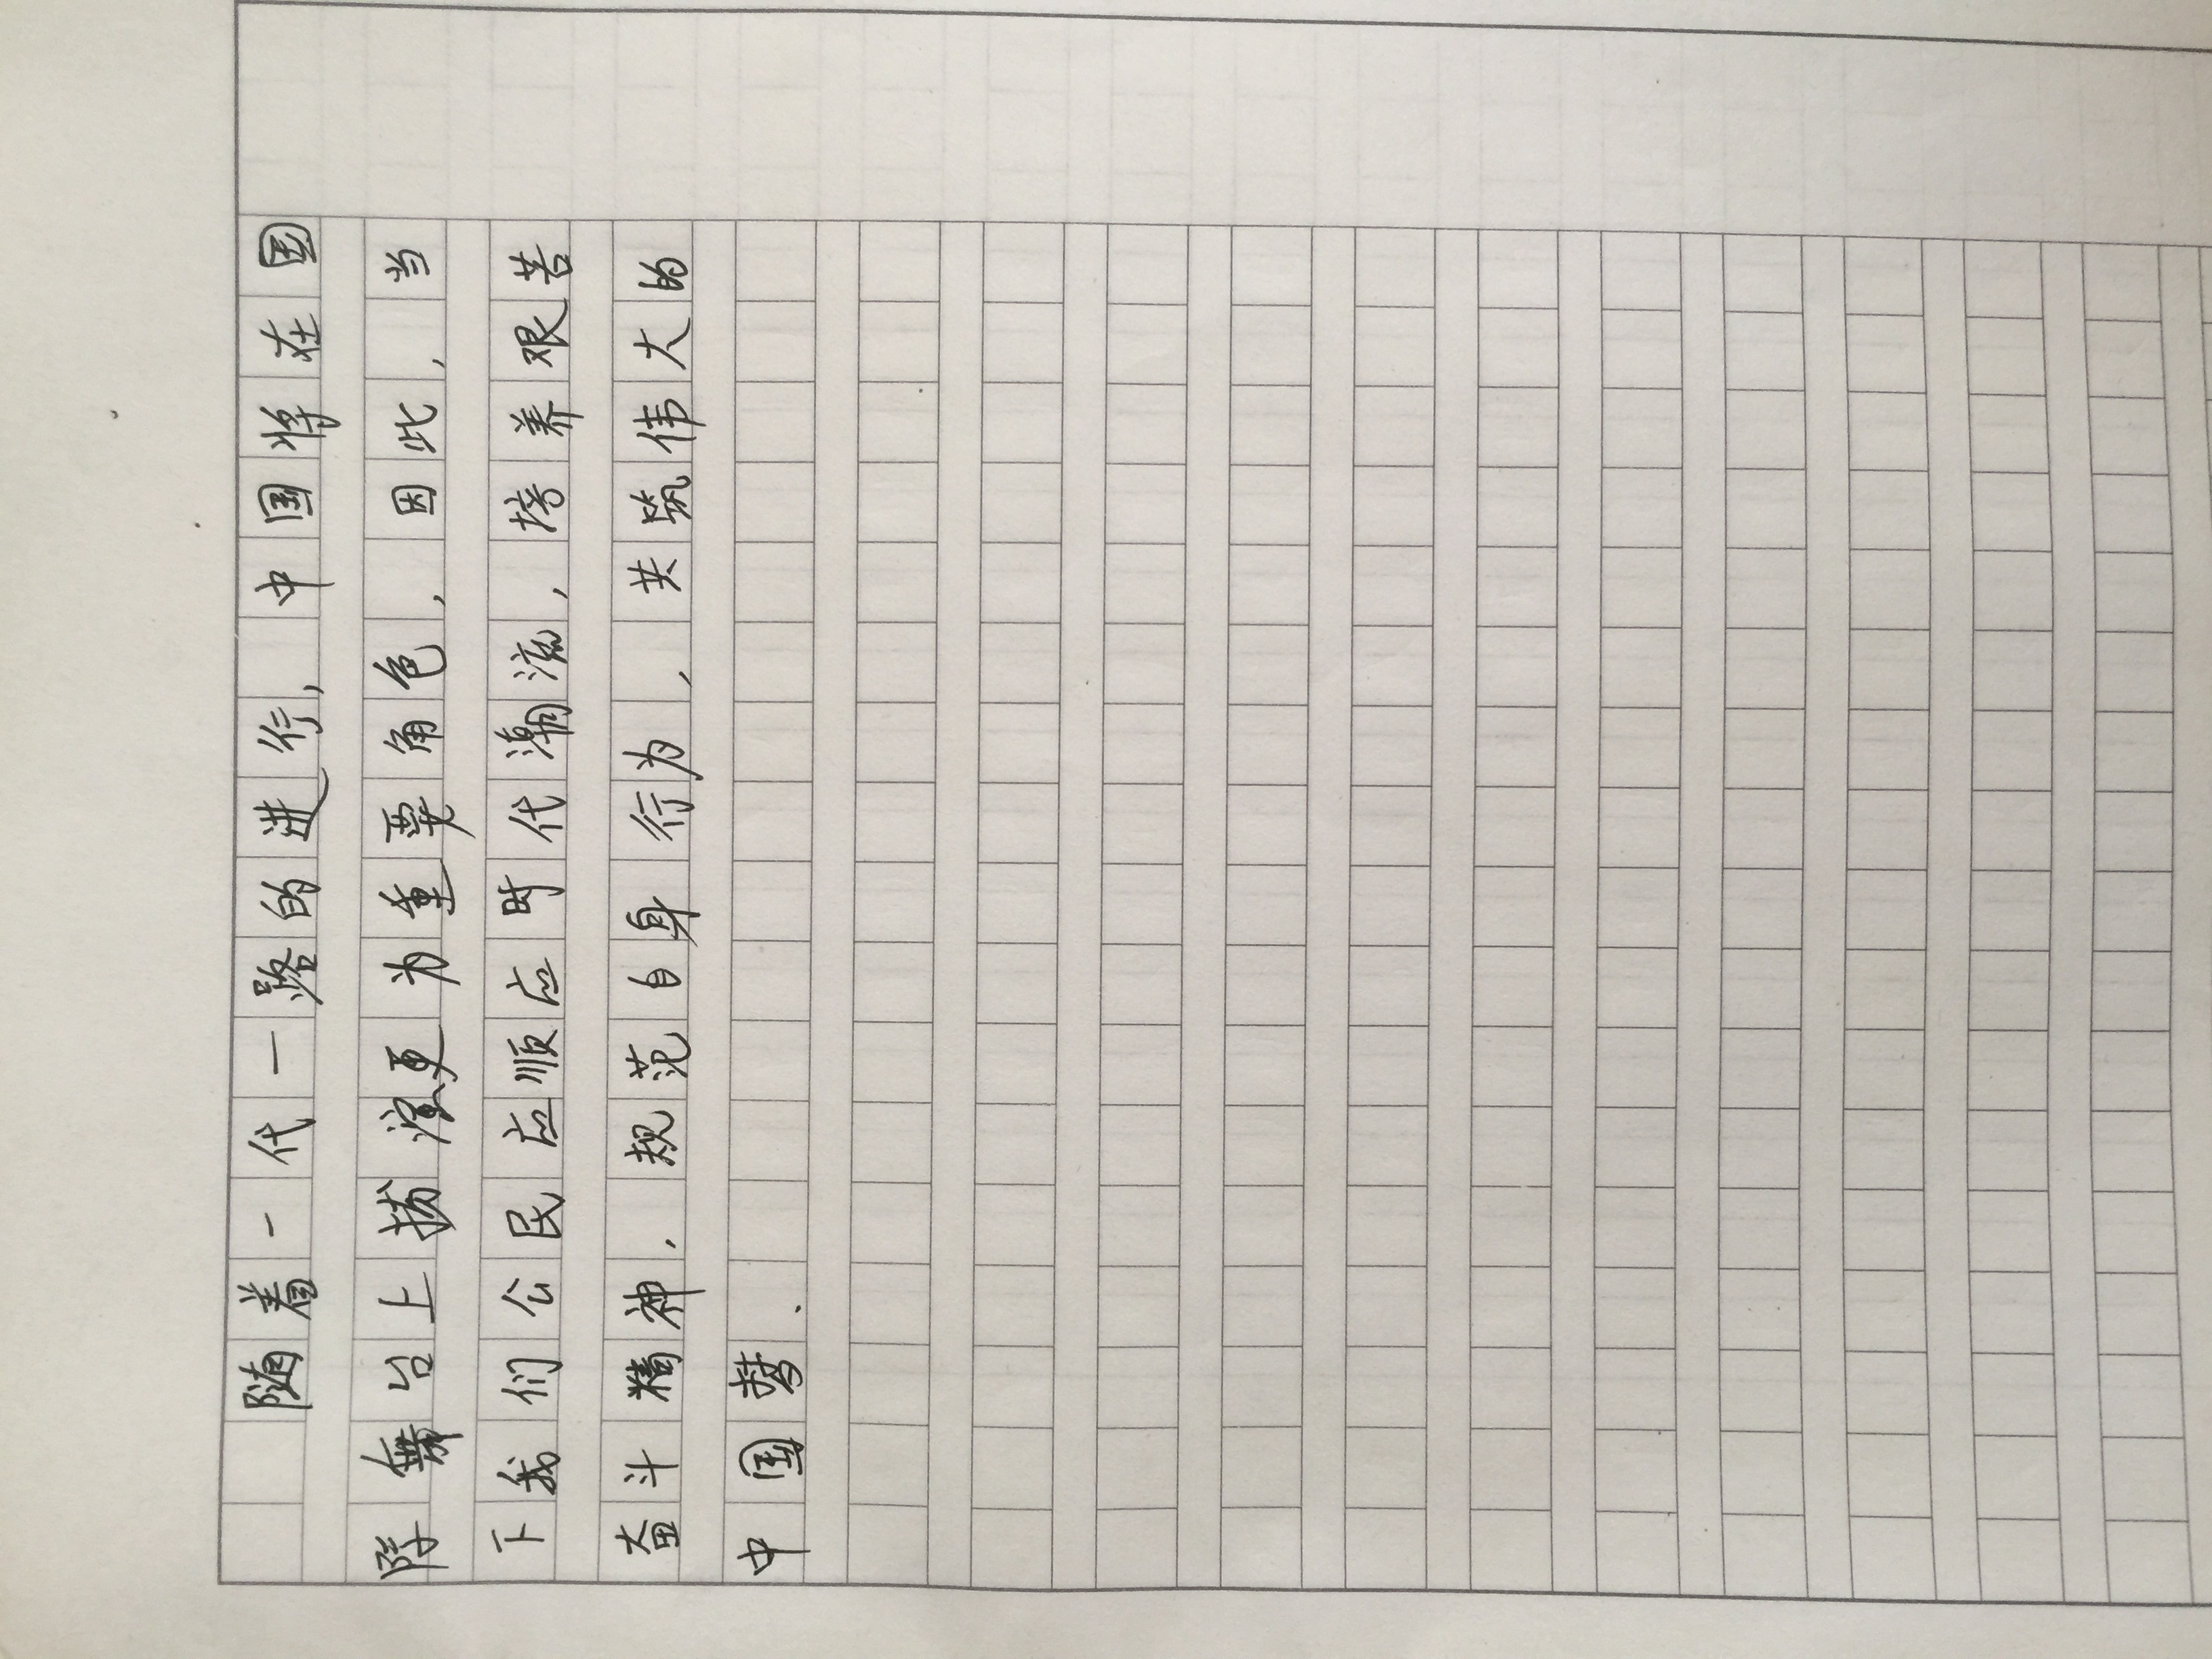 随着一代一路的进行，中国将在国
际舞台上扮演更为重要角色，因此，当
下我们公民应顺应时代潮流，培养艰苦
奋斗精神，规范自身行为，共筑伟大的
中国梦.